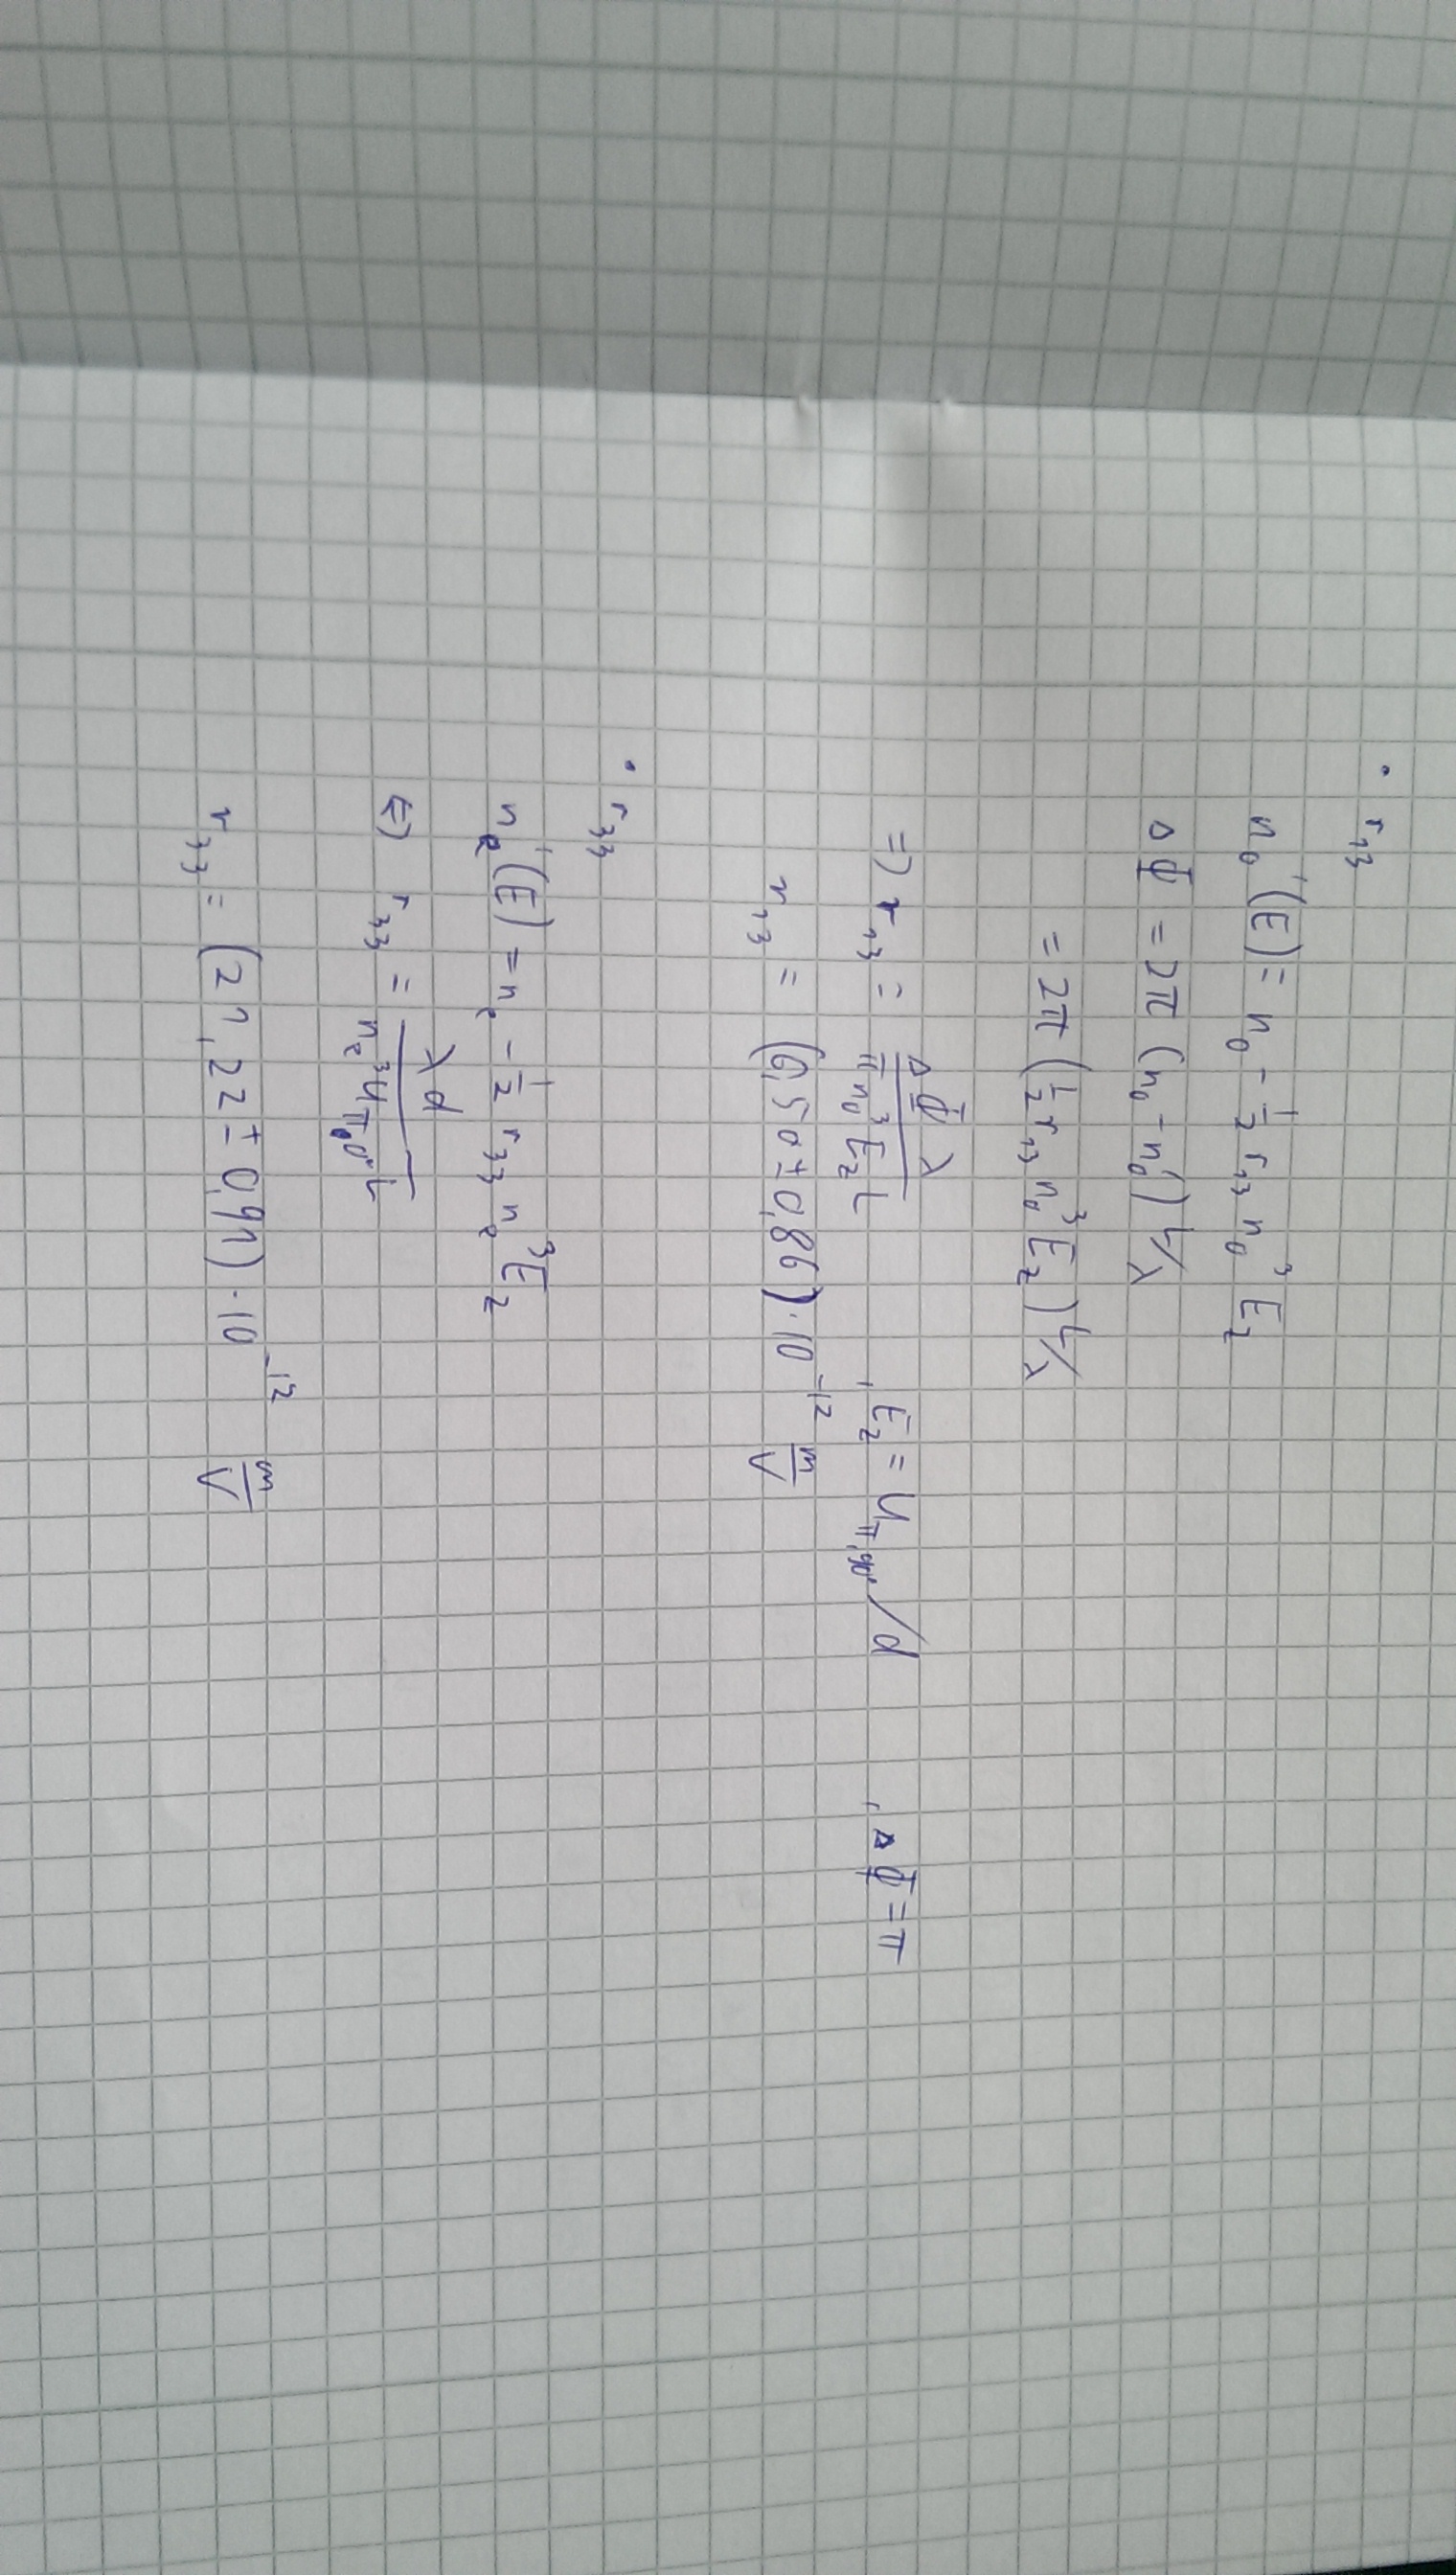 • r₁₃
n₀'(E) = n₀ - ½ r₁₃ n₀³ E_z
ΔΦ = 2π (n₀ - n₀') L/λ
= 2π (½ r₁₃ n₀³ E_z) L/λ
=> r₁₃ = ΔΦ λ / (π n₀³ E_z L) , E_z = U_π,90° / d , ΔΦ = π
r₁₃ = (6,50 ± 0,86) · 10⁻¹² m/V
• r₃₃
nₑ'(E) = nₑ - ½ r₃₃ nₑ³ E_z
<=> r₃₃ = λ d / (nₑ³ U_π,0° L)
r₃₃ = (21,22 ± 0,91) · 10⁻¹² m/V